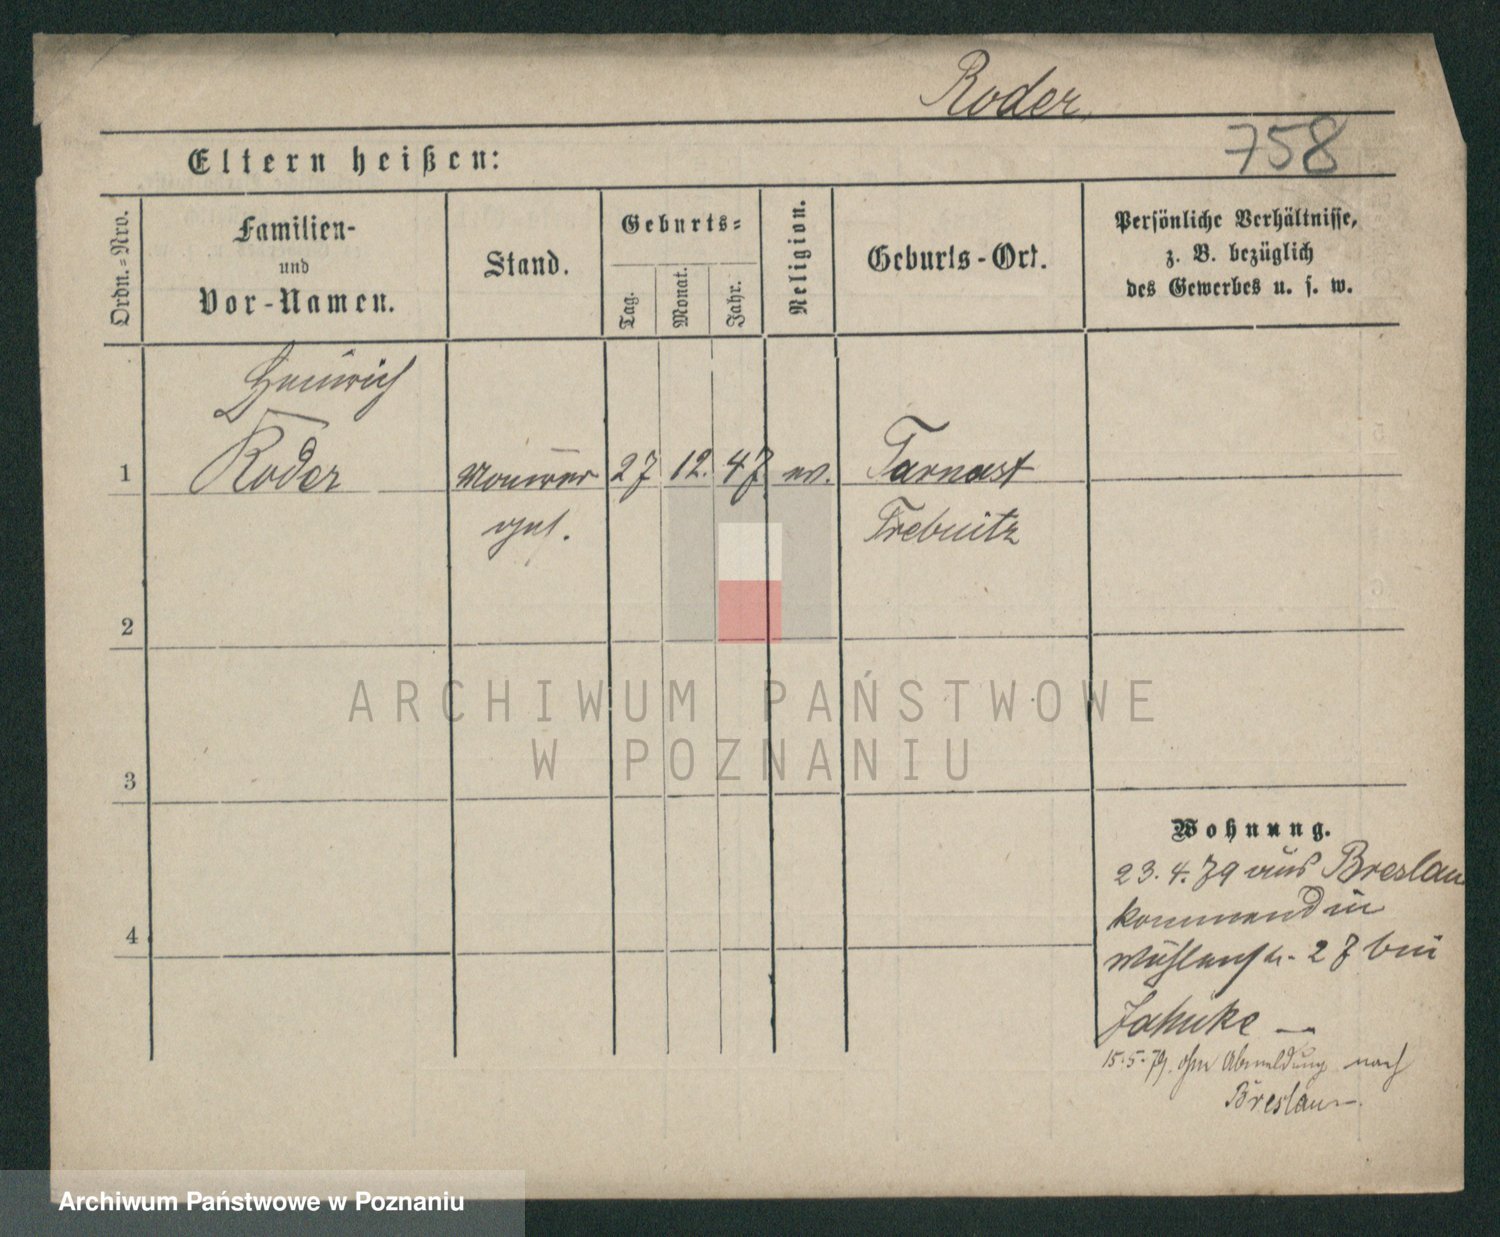 Roder,
758
Eltern heißen:
Ordn.-Nro.
Familien-
und
Vor-Namen.
Stand.
Geburts-
Tag.
Monat.
Jahr.
Religion.
Geburts-Ort.
Persönliche Verhältnisse,
z. B. bezüglich
des Gewerbes u. s. w.
Heinrich
1 Roder Maurer 27 12. 47 ev. Tarnast
Trebnitz
2
3
4
ARCHIWUM PAŃSTWOWE
W POZNANIU
Wohnung.
23.4.79 aus Breslau
kommend in
Mühlenstr. 27 bei
Jahnke —
15.5.79. ohne Abmeldung nach
Breslau —.
Archiwum Państwowe w Poznaniu